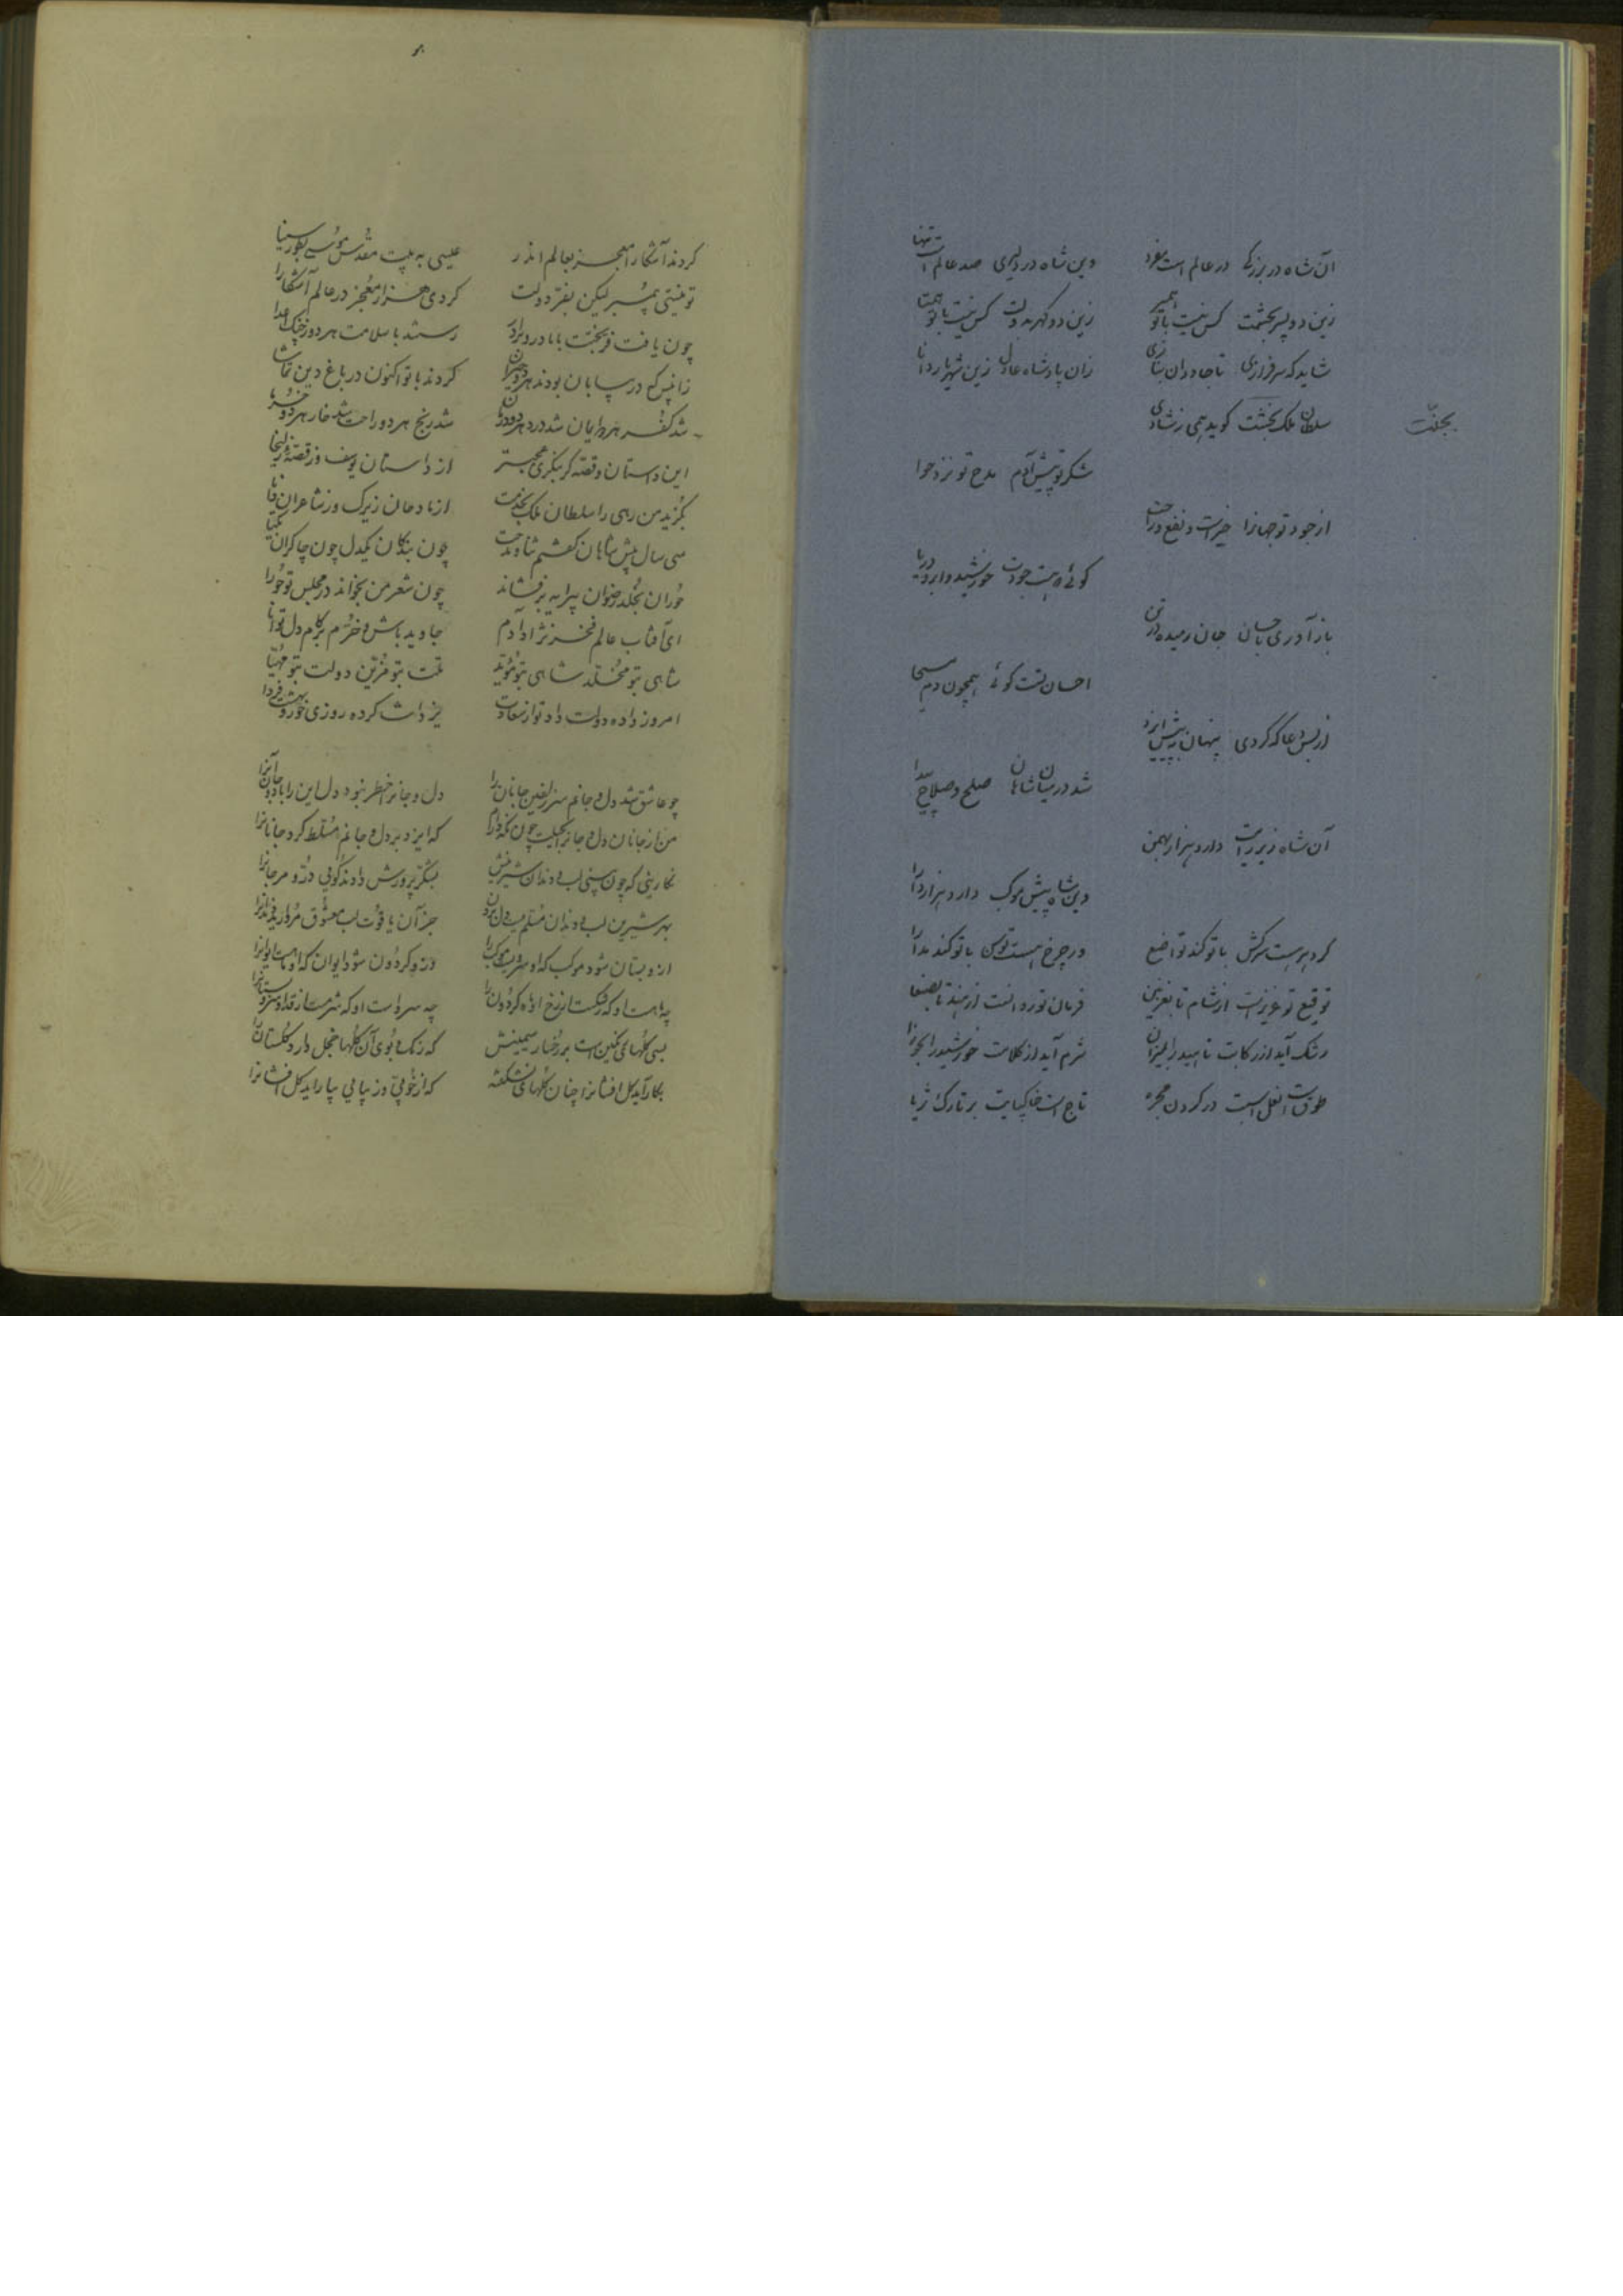 آن شاه در بزرگی در عالم است مفرد
وین شاه در دلیری صد عالم است تنها
زین دو پسر بحشمت کس نیست با تو همسر
زین دو گهر بدولت کس نیست با تو همتا
شاید که سرفرازی تا جاودان بنازی
زان پادشاه عادل زین شهریار دانا
سلطان ملک بخشت گوید همی ز شادی
بجنّت
شکر تو پیش آدم مدح تو نزد حوا
از جود تو جهانرا خیرست و نفع و راحت
گوئی که هست جودت خورشید و ابر و دریا
باز آوری باحسان جان رمیده در تن
احسان تست گوئی همچون دم مسیحا
از بس دعا که کردی پنهان به پیش ایزد
شد در میان شاهان صلح و صلاح پیدا
آن شاه زیر رایت دارد هزار بهمن
وین شاه پیش موکب دارد هزار دارا
گر دهرست سرکش با تو کند تواضع
ور چرخ هست توسن با تو کند مدارا
توقیع تو عزیزست از شام تا بغزنین
فرمان تو روانست از هند تا بصنعا
رشک آید از رکابت ناهید را بمیزان
شرم آید از کلاهت خورشید را بجوزا
طوق است نعل اسبت در گردن مجره
تاج است خاکپایت بر تارک ثریا
کردند آشکارا معجز بعالم اندر
عیسی به بیت مقدس موسی بطور سینا
تو نیستی پیمبر لیکن بفرّ دولت
کردی هزار معجز در عالم آشکارا
چون یافت فرّ بختت بابا در و برادر
رستند با سلامت هر دو ز چنگ اعدا
زانپس که در بیابان بودند هر دو حیران
کردند با تو اکنون در باغ دین تماشا
شد کفر هر دو ایمان شد درد هر دو درمان
شد رنج هر دو راحت شد خار هر دو خرما
این داستان و قصّه گر بنگری عجبتر
از داستان یوسف وز قصّهٔ زلیخا
بگزید من رهی را سلطان ملک بخدمت
از مادحان زیرک وز شاعران دانا
سی سال پیش شاهان گفتم ثنا و مدحت
چون بندگان یکدل چون چاکران یکتا
حوران بخلد رضوان پیرایه برفشانند
چون شعر من بخوانند در مجلس تو حورا
ای آفتاب عالم فخر نژاد آدم
جاوید باش و خرّم بر کام دل توانا
شاهی بتو مخلّد شاهی بتو مؤید
ملت بتو مزیّن دولت بتو مهیّا
امروز داده دولت داد تو از سعادت
یزدانت کرده روزی حور و بهشت فردا
چو عاشق شد دل و جانم سر زلفین جانان را
دل و جانرا خطر نبود دل این را باد و جان آنرا
من از جانان دل و جانرا بحیلت چون نگه دارم
که ایزد بر دل و جانم مسلّط کرد جانانرا
نگارینی که چون بینی لب و دندان شیرینش
بشکّر پرورش دادند گوئی درّ و مرجانرا
بهر شیرین لب و دندان مسلم نیست دل بردن
جز آن یاقوت لب معشوق مروارید دندانرا
ازو بستان شود موکب که او سروست موکب را
وزو گردون شود ایوان که او ماهست ایوانرا
چه ماهست او که رشکست از رخ او ماه گردون را
چه سروست او که شرمست از قد او سرو بستانرا
بسی گلهای رنگین است بر رخسار سیمینش
که رنگ و بوی آن گلها خجل دارد گلستان را
بکار آید گل افشانرا چنان گلهای نشکفته
که از خوبی و زیبائی بیاراید گل افشانرا